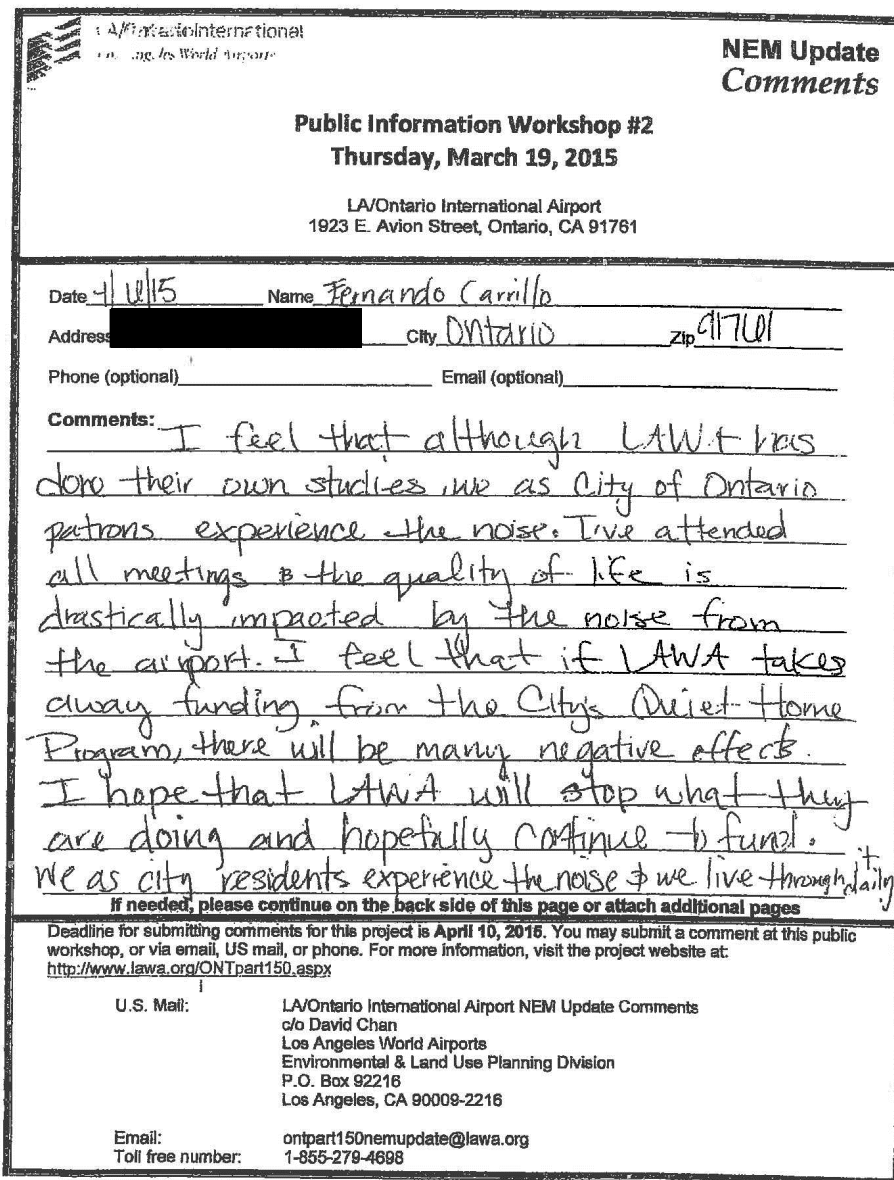 LA/Ontario International
Los Angeles World Airports
NEM Update
Comments
Public Information Workshop #2
Thursday, March 19, 2015
LA/Ontario International Airport
1923 E. Avion Street, Ontario, CA 91761
Date 4/ /15 Name Fernando Carrillo
Address City Ontario Zip 91761
Phone (optional) Email (optional)
Comments: I feel that although LAWA has
done their own studies, we as City of Ontario
patrons experience the noise. I've attended
all meetings & the quality of life is
drastically impacted by the noise from
the airport. I feel that if LAWA takes
away funding from the City's Quiet Home
Program, there will be many negative effects.
I hope that LAWA will stop what they
are doing and hopefully continue to fund.
We as city residents experience the noise & we live through it daily
If needed, please continue on the back side of this page or attach additional pages
Deadline for submitting comments for this project is April 10, 2015. You may submit a comment at this public
workshop, or via email, US mail, or phone. For more information, visit the project website at:
http://www.lawa.org/ONTpart150.aspx
U.S. Mail: LA/Ontario International Airport NEM Update Comments
c/o David Chan
Los Angeles World Airports
Environmental & Land Use Planning Division
P.O. Box 92216
Los Angeles, CA 90009-2216
Email: ontpart150nemupdate@lawa.org
Toll free number: 1-855-279-4698